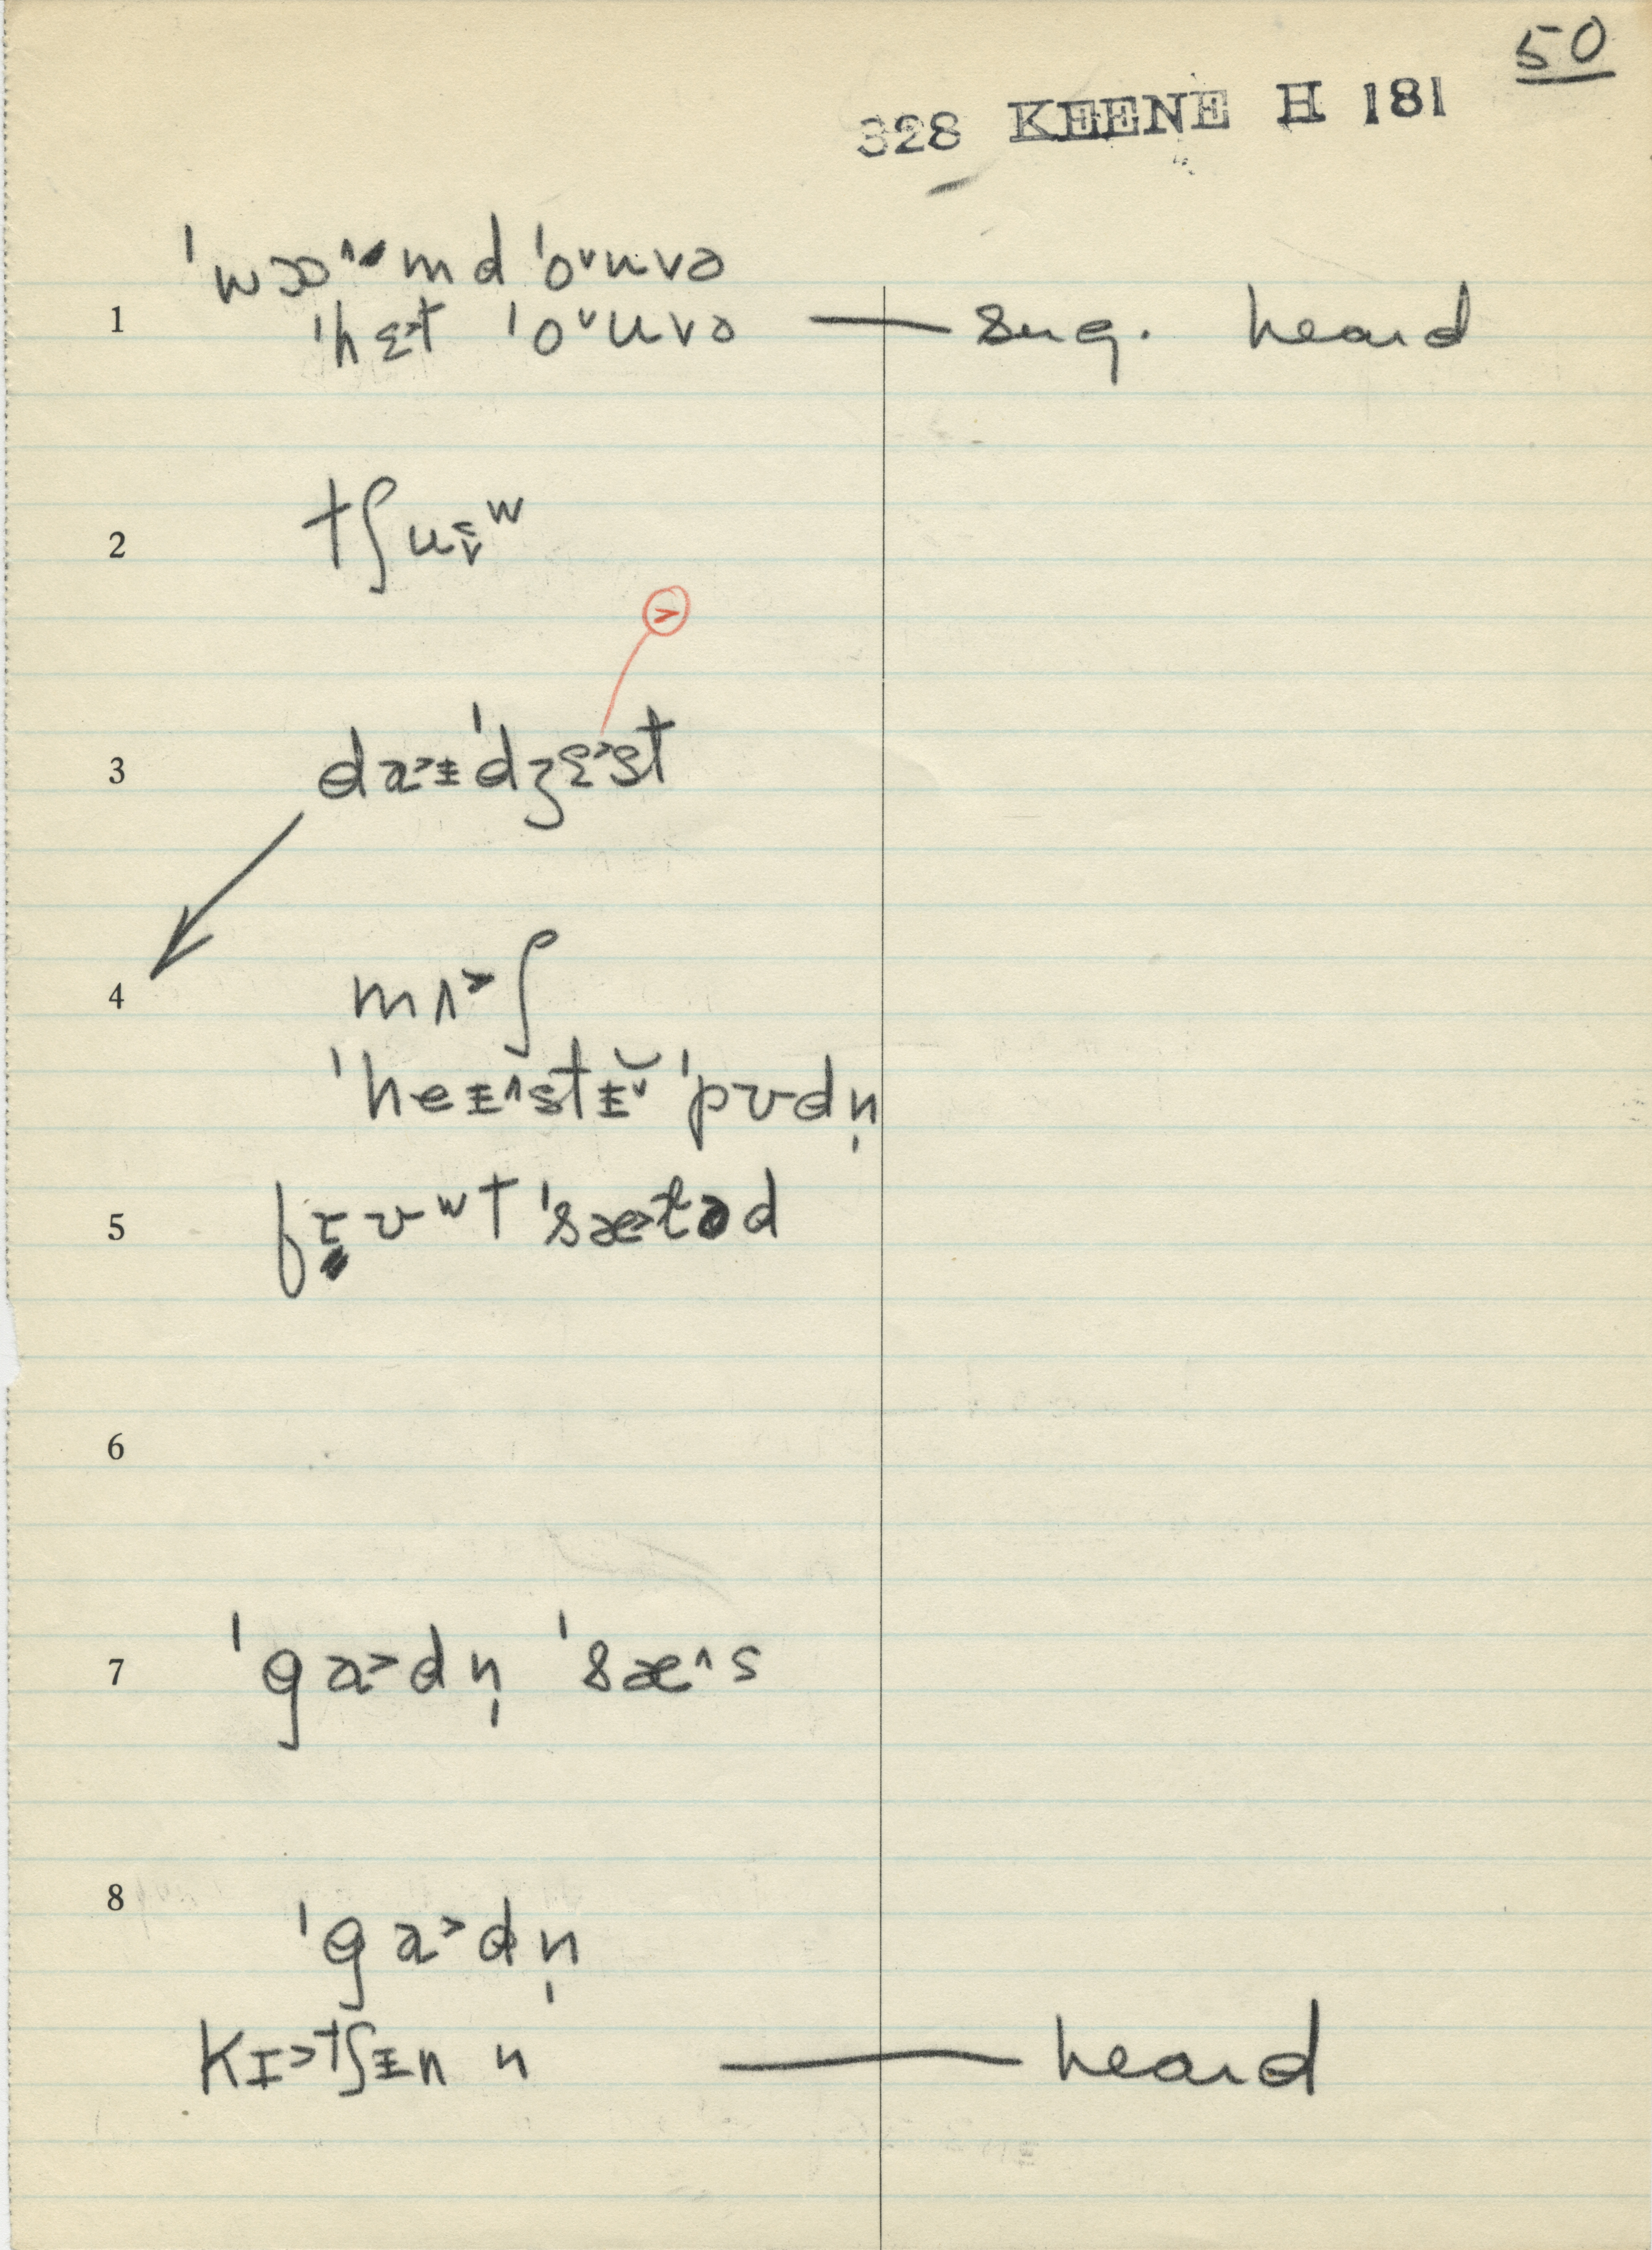 50
328 KEENE H 181
ˈwɔ^md ˈoᵛuvə
1 ˈhɛ>t ˈoᵛuvə — sug. heard
2 tʃuᵛʷ
>
3 da>ɨˈdʒɛ>st
4 mʌ>ʃ
ˈheɨ^stɨ̆ᵛ ˈpʊdn̩
5 ʊʷt ˈsæ>təd
6
7 ˈga>dn̩ ˈsæ^s
8
ˈga>dn̩
kɪ>tʃɨn n — heard